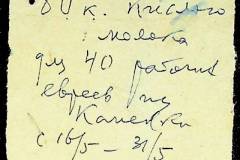 80 к. кислого
молока
для 40 рабочих
евреев из
Каменки
с 16/5 – 31/5